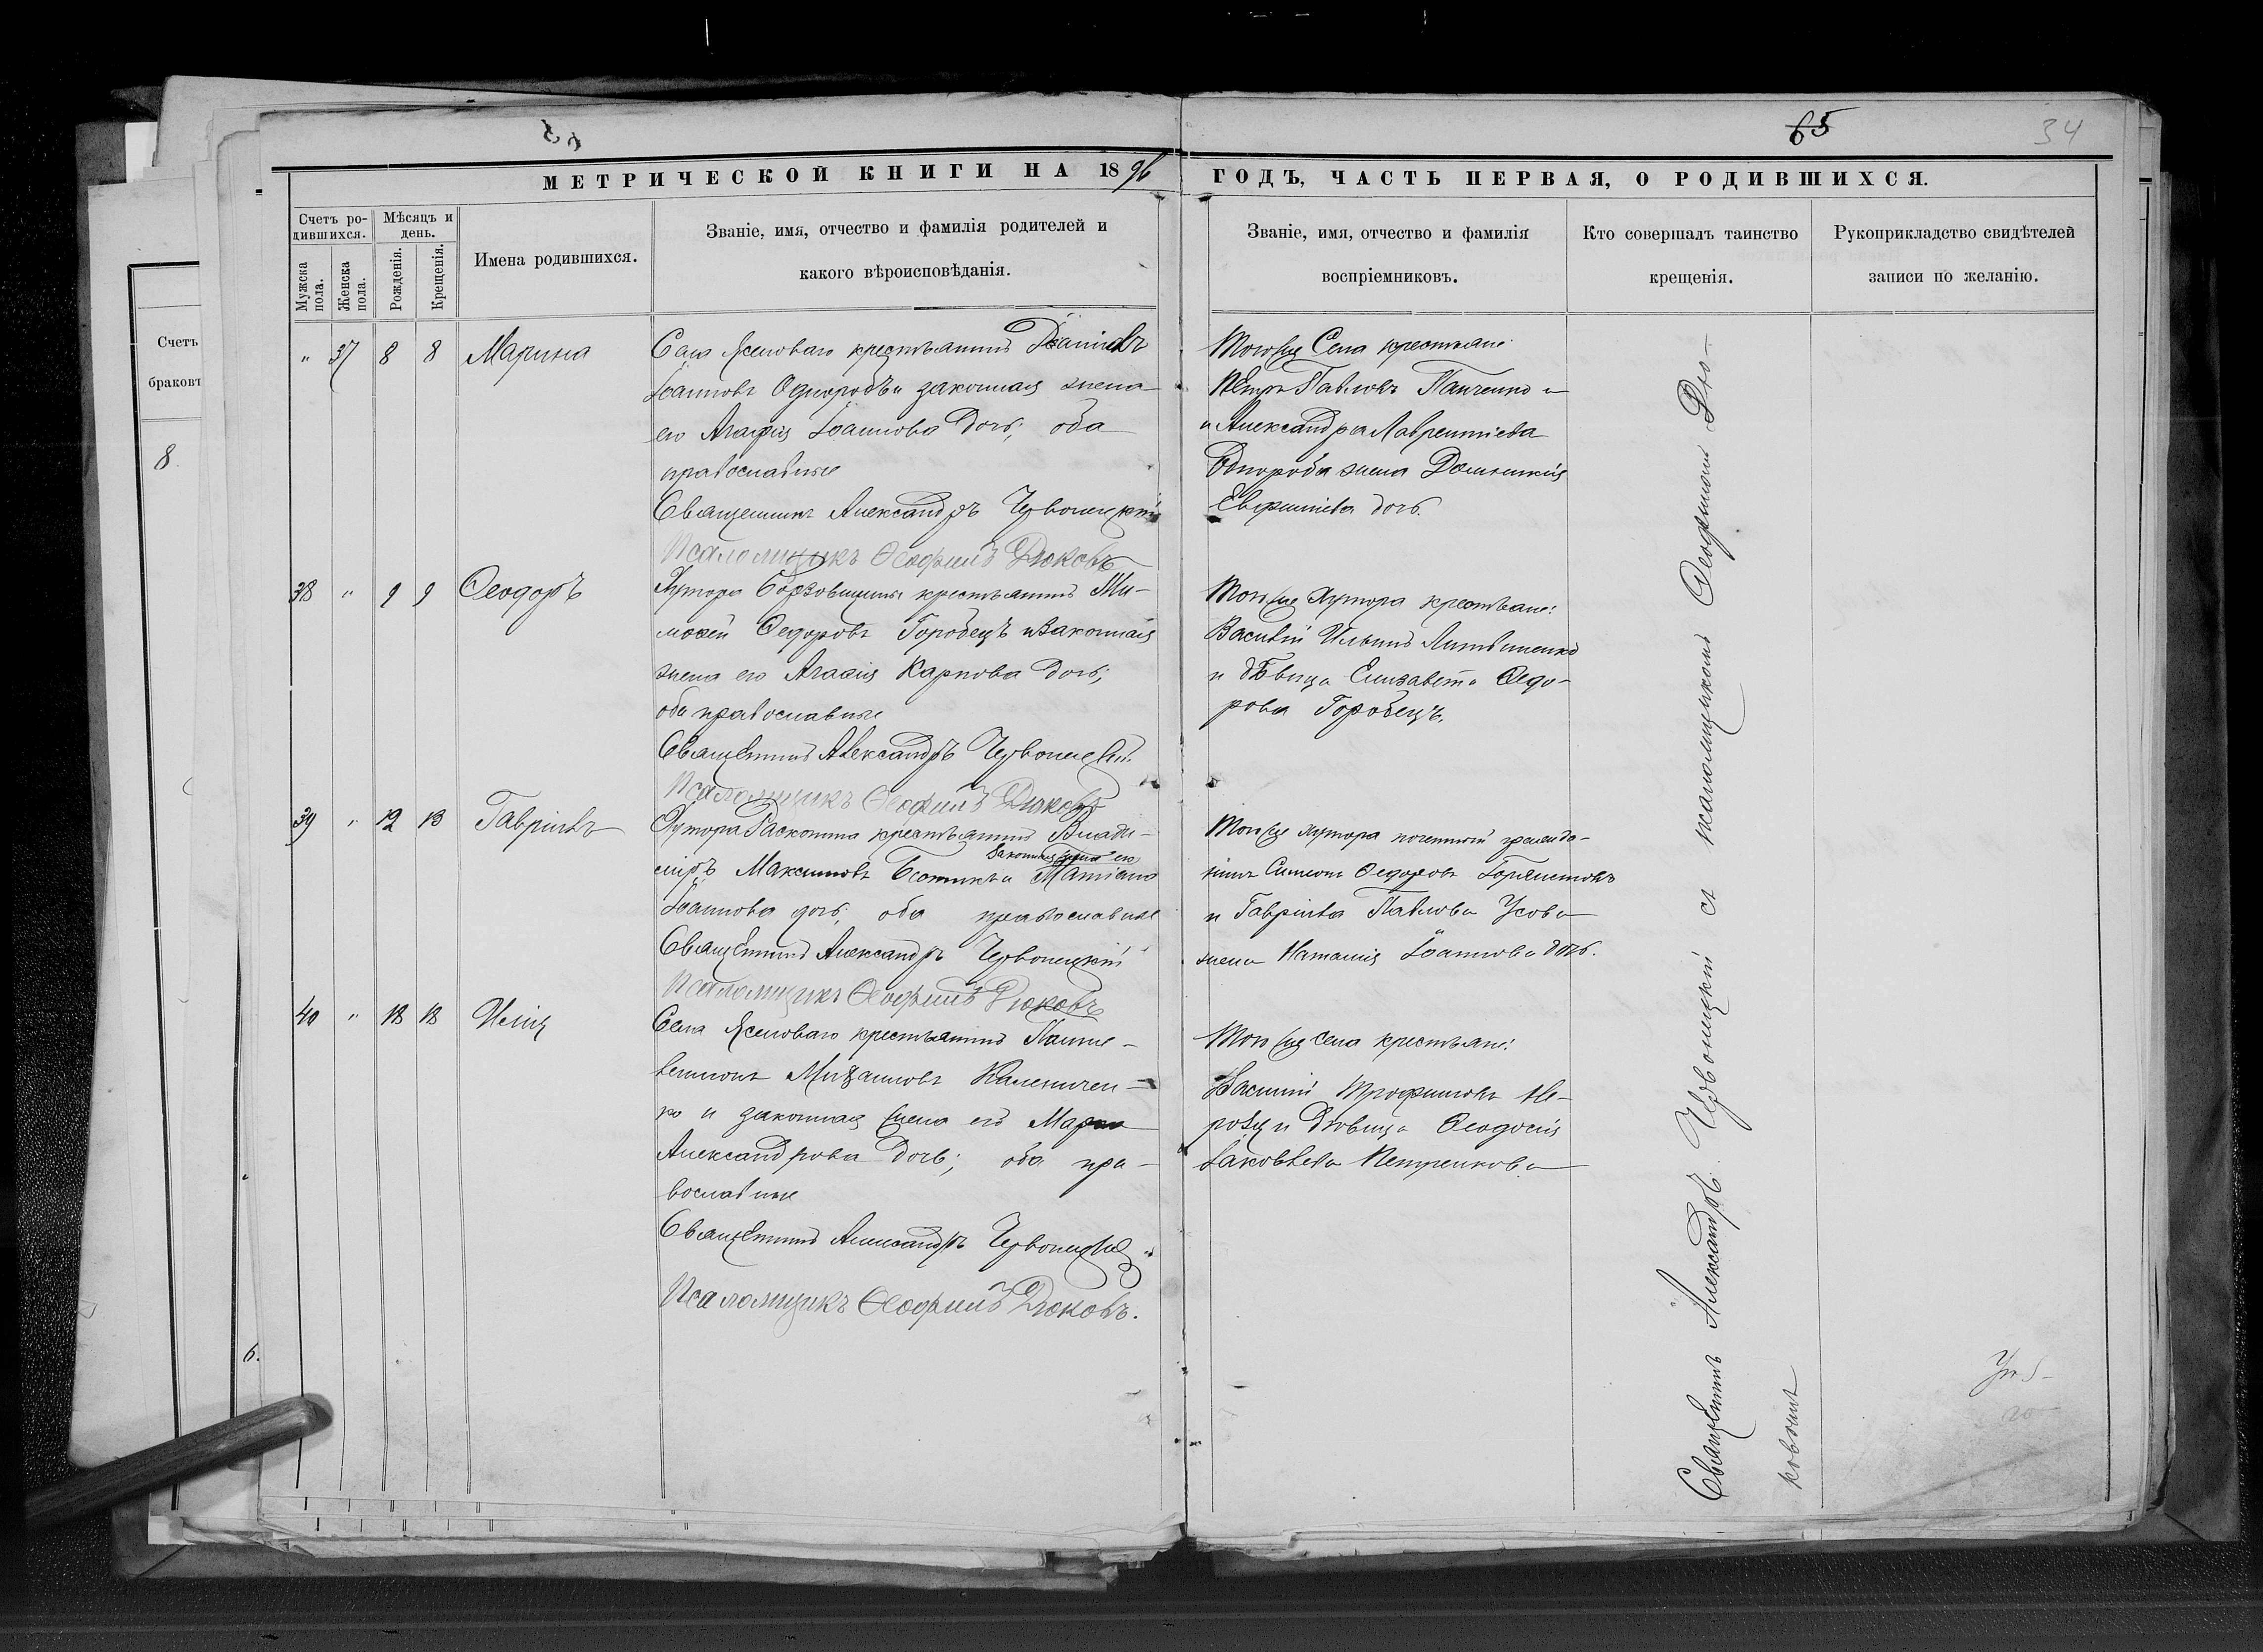 65
34
МЕТРИЧЕСКОЙ КНИГИ НА 1896
ГОДЪ, ЧАСТЬ ПЕРВАЯ, О РОДИВШИХСЯ.
Счетъ ро-
дившихся.
Мѣсяцъ и
день.
Мужска
пола.
Женска
пола.
Рожденія.
Крещенія.
Имена родившихся.
Званіе, имя, отчество и фамилія родителей и
какого вѣроисповѣданія.
Званіе, имя, отчество и фамилія
воспріемниковъ.
Кто совершалъ таинство
крещенія.
Рукоприкладство свидѣтелей
записи по желанію.
Счетъ
браковъ
8
" 37 8 8 Марина
Села Ясеноваго крестьянинъ Даніилъ
Іоанновъ и законная жена
его Агафія Іоаннова дочь; оба
православные
Священникъ Александръ Червонецкій
Псаломщикъ Ѳеофилъ Дюковъ
Того же Села крестьяне
Петръ Павловъ Панченко и
и Александра Лаврентіева
жена Домникія
дочь.
38 " 9 9 Ѳеодоръ
Хутора крестьянинъ Ти-
моѳей Ѳедоровъ Горобецъ и законная
жена его Агаѳія Карпова дочь;
оба православные
Священникъ Александръ Червонецкій
Псаломщикъ Ѳеофилъ Дюковъ
Того же Хутора крестьяне:
Василій Ильинъ Литвиненко
и дѣвица Елизавета Ѳедо-
рова Горобецъ.
39 " 12 13 Гавріилъ
Хутора крестьянинъ Влади-
міръ Максимовъ и законная жена его Татіана
Іоаннова дочь; оба православные
Священникъ Александръ Червонецкій
Псаломщикъ Ѳеофилъ Дюковъ
Того же хутора почетный гражда-
нинъ Симеонъ Ѳедоровъ
и Гавріила Павлова Усова
жена Наталія Іоаннова дочь.
40 " 18 18 Илія
Села Ясеноваго крестьянинъ Панте-
леимонъ Михаиловъ Калениchen-
ко и законная жена его Марѳа
Александрова дочь; оба пра-
вославные
Священникъ Александръ Червонецкій
Псаломщикъ Ѳеофилъ Дюковъ.
Того же села крестьяне:
Василій Трофимовъ
и дѣвица Ѳеодосія
Іаковлева Петренкова
Священникъ Александръ Червонецкій съ псаломщикомъ Ѳеофиломъ Дю-
ковымъ